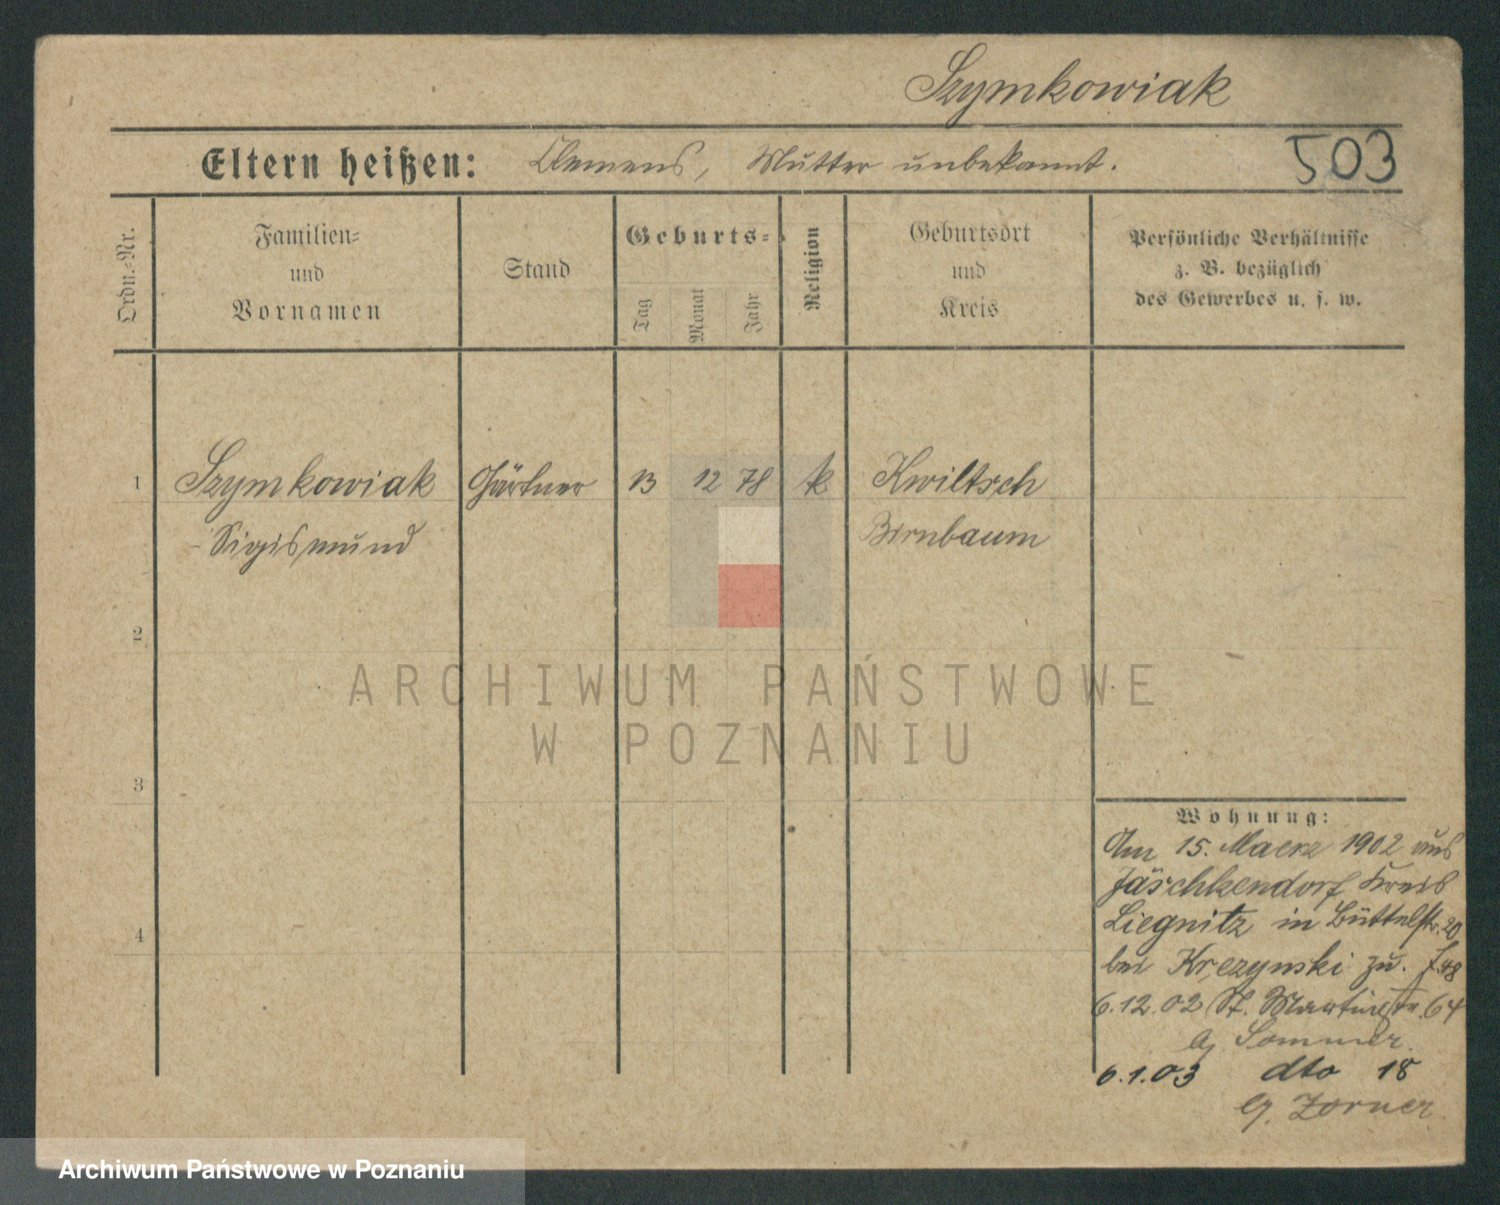 Szymkowiak
503
Eltern heißen: Clemens, Mutter unbekannt.
Ordn.-Nr.
Familien-
und
Vornamen
Stand
Geburts-
Tag
Monat
Jahr
Religion
Geburtsort
und
Kreis
Persönliche Verhältnisse
z. B. bezüglich
des Gewerbes u. s. w.
1 Szymkowiak Gärtner 13 12 78 k Kwiltsch
Sigismund Birnbaum
2
ARCHIWUM PAŃSTWOWE
W POZNANIU
3
Wohnung:
Am 15. Maerz 1902 aus
Jäschkendorf Kreis
Liegnitz in Büttelstr. 20
4
bei Krezynski zu.
6.12.02 St. Martinstr. 64
Sommer
6.1.03 dto 18
Zorner
Archiwum Państwowe w Poznaniu